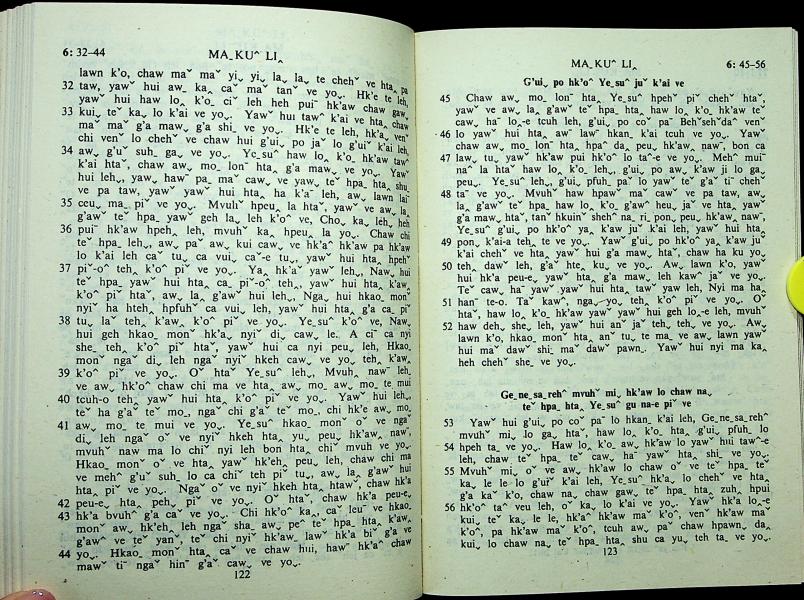 6: 32-44 MAˍ KUˆ LI‸
lawn k'o, chaw maˇ maˇ yi˯ yi˯ la˯ la˯ teˍ chehˇ ve hta‸ pa
32 taw, yawˇ hui aw˯ ka‸ caˇ maˇ tanˇ ve yo˯. Hk'e te leh,
yawˇ hui haw lo‸ k'oˍ ciˇ leh heh puiˉ hk'aw chaw gaw‸
33 kui˯ teˇ ka˯ lo k'ai ve yo˯. Yawˇ hui tawˆ k'ai ve hta‸ chaw
maˇ maˇ g'a maw˯ g'a shi˯ ve yo˯. Hk'e te leh, hk'a˯ venˆ
chi venˆ lo chehˇ ve chaw hui g'ui˯ po jaˇ lo g'uiˇ k'ai leh,
34 aw˯ g'uˇ suh˯ ga˯ ve yo˯. Yeˍsuˆ haw lo‸ k'oˍ hk'aw tawˆ
k'ai htaˇ, chaw aw˯ moˍ lonˉ hta‸ g'a maw˯ ve yo˯. Yawˇ
hui leh˯, yaw‸ hawˉ pa˯ maˇ caw˯ ve yaw˯ teˇ hpaˍ hta‸ shu
ve pa taw, yawˇ yawˇ hui hta‸ ha k'aˉ leh, aw˯ lawn laiˇ
35 ceu˯ maˍ piˇ ve yo˯. Mvuhˇ hpeu˯ la htaˇ, yawˇ ve aw˯ la‸
g'awˇ teˇ hpaˍ yawˇ geh la˯ leh k'oˆ ve, Cho‸ ka˯ leh‸ heh
36 puiˉ hk'aw hpeh‸ leh, mvuhˇ ka‸ hpeu˯ la yo˯. Chaw chi
teˇ hpaˍ leh˯, aw˯ paˇ aw˯ kui caw˯ ve hk'aˆ hk'aw pa hk'aw
lo k'ai leh caˇ tu˯ ca vui˯ caˇ-e tu˯, yawˇ hui hta‸ hpehˇ
37 piˇ-oˆ teh‸ k'oˆ piˇ ve yo˯. Ya‸ hk'aˇ yawˇ leh˯, Naw˯ hui
teˇ hpaˍ yawˇ hui hta‸ caˍ piˇ-oˆ teh‸, yawˇ hui hta‸ k'aw‸
k'oˆ piˇ htaˇ, aw˯ la‸ g'awˇ hui leh˯, Nga˯ hui hkaoˍ monˉ
nyiˇ ha hteh‸ hpfuhˇ ca vui˯ leh, yawˇ hui hta‸ g'a caˍ piˇ
38 tu˯ laˇ teh‸ k'aw‸ k'oˆ piˇ ve yo˯. Yeˍsuˆ k'oˆ ve, Naw˯
hui geh hkaoˍ monˉ hk'a˯ nyiˇ di˯ caw˯ le. A ciˇ ca nyi
she˯ teh‸ k'oˆ piˇ htaˇ, yawˇ hui ca nyi peu˯ leh, Hkaoˍ
monˉ ngaˇ di˯ leh ngaˇ nyiˇ hkeh caw˯ ve yo˯ teh‸ k'aw‸
39 k'oˆ piˇ ve yo˯. Oˇ htaˇ Yeˍsuˆ leh˯, Mvuh‸ nawˉ leh‸
ve aw˯ hk'oˆ chaw chi ma ve hta‸ aw˯ moˍ aw˯ moˍ te mui
40 tcuh-o teh‸ yawˇ hui hta‸ k'oˆ piˇ ve yo˯. Yawˇ hui leh˯,
teˇ ha g'aˇ teˇ moˍ, ngaˇ chi g'aˇ teˇ moˍ, chi hk'e aw˯ moˍ
41 aw˯ moˍ te mui ve yo˯. Yeˍsuˆ hkaoˍ monˉ oˇ ve ngaˇ
di˯ leh ngaˇ oˇ ve nyiˇ hkeh hta‸ yu˯ peu˯ hk'aw‸ nawˉ,
mvuhˇ naw ma lo chiˇ nyi leh bon hta‸ chiˇ mvuh ve yo˯.
Hkaoˍ monˉ oˇ ve hta‸ yawˇ hk'eh‸ peu˯ leh, chaw chi ma
ve mehˆ g'uˇ suh˯ lo caˇ tehˇ piˇ tu˯, aw˯ la‸ g'awˇ hui
hta‸ piˇ ve yo˯. Ngaˇ oˇ ve nyiˇ hkeh hta‸ htawˇ, chaw hk'a
42 peu-e˯ hta‸ peh˯ piˇ ve yo˯. Oˇ htaˇ, chaw hk'a peu-e˯
43 hk'a bvuhˆ g'a caˇ ve yo˯. Chi hk'oˆ ka‸, caˇ leuˉ ve hkaoˍ
monˉ aw˯ hk'eh˯ leh ngaˇ sha˯ aw˯ peˆ teˇ hpaˍ hta‸ k'aw‸
g'awˆ ve teˇ yanˇ, teˇ chi nyiˇ hk'aw˯ lawˇ hk'a biˇ g'a ve
44 yo˯. Hkaoˍ monˉ hta‸ caˇ ve chaw hui, hawˉ hk'aˆ chaw
mawˇ tiˉ ngaˇ hinˉ g'aˇ caw˯ ve yo˯.
122
MAˍ KUˆ LI‸ 6: 45-56
G'ui˯ po hk'oˆ Yeˍsuˆ juˇ k'ai ve
45 Chaw aw˯ moˍ lonˉ hta‸ Yeˍsuˆ hpehˇ piˇ chehˇ htaˇ,
yawˇ ve aw˯ la‸ g'awˇ teˇ hpaˍ hta‸ haw lo‸ k'oˍ hk'aw teˇ
caw‸ haˉ lo˯-e tcuh leh, g'ui˯ po coˇ paˇ Behˇsehˇdaˆ venˆ
46 lo yawˇ hui hta‸ awˉ lawˉ hkan˯ k'ai tcuh ve yo˯. Yawˇ
chaw aw˯ moˍ lonˉ hta‸ hpaˆ da‸ peu˯ hk'aw‸ nawˉ, bon ca
47 law˯ tu˯ yawˇ hk'aw pui hk'oˆ lo taˆ-e ve yo˯. Mehˆ mui
naˆ la htaˇ haw lo‸ k'oˍ leh˯, g'ui˯ po aw˯ k'aw ji lo ga˯
peu˯. Yeˍsuˆ leh˯, g'ui˯ pfuh˯ paˇ lo yawˇ teˇ g'aˇ tiˉ chehˇ
48 taˉ ve yo˯. Mvuhˇ haw hpawˉ maˇ caw˯ ve pa taw, aw˯
la‸ g'awˇ teˇ hpaˍ haw lo‸ k'oˍ g'awˆ heu˯ jaˇ ve hta‸ yawˇ
g'a maw˯ htaˇ, tanˇ hkuinˇ shehˆ naˍ riˍ pon˯ peu˯ hk'aw‸ nawˉ,
Yeˍsuˆ g'ui˯ po hk'oˆ ya‸ k'aw juˇ k'ai leh, yawˇ hui hta‸
49 pon˯ k'ai-a teh‸ te ve yo˯. Yawˇ g'ui˯ po hk'oˆ ya‸ k'aw juˇ
k'ai chehˇ ve hta‸ yawˇ hui g'a maw˯ htaˇ, chaw ha ku yo˯
50 teh‸ dawˇ leh, g'aˇ hteˍ ku˯ ve yo˯. Aw˯ lawn k'o, yawˇ
hui hk'a peu-e˯ yawˇ hta‸ g'a maw˯ leh kawˆ jaˇ ve yo˯.
Teˇ caw‸ haˉ yawˇ yawˇ hui hta‸ tawˇ yaw leh, Nyi ma ha‸
51 hanˉ te-o. Taˇ kawˆ, nga˯-yo˯ teh‸ k'oˆ piˇ ve yo˯. Oˇ
htaˇ, haw lo‸ k'oˍ hk'aw yawˇ yawˇ hui geh lo˯-e leh, mvuhˇ
52 haw deh˯ she˯ leh, yawˇ hui anˇ jaˇ teh‸ teh˯ ve yo˯. Aw˯
lawn k'o, hkaoˍ monˉ hta‸ anˇ tu˯ te maˍ ve aw˯ lawn yawˇ
hui maˇ dawˇ shi˯ maˇ dawˇ pawn˯. Yawˇ hui nyi ma ka‸
heh chehˇ she˯ ve yo˯.
Geˍneˍsaˍrehˆ mvuhˇ mi˯ hk'aw lo chaw na˯
teˇ hpaˍ hta‸ Yeˍsuˆ gu na-e piˇ ve
53 Yawˇ hui g'ui˯ po coˇ paˇ lo hkan˯ k'ai leh, Geˍneˍsaˍrehˆ
mvuhˇ mi˯ lo ga˯ htaˇ, haw lo‸ k'oˍ hta‸ g'ui˯ pfuh˯ lo
54 hpeh ta˯ ve yo˯. Haw lo‸ k'oˍ aw˯ hk'aw lo yawˇ hui tawˆ-e
leh, chaw hta‸ teˇ hpaˍ teˇ caw‸ haˉ yawˇ hta‸ shi˯ ve yo˯.
55 Mvuhˇ mi˯ oˇ ve aw˯ hk'aw lo chaw oˇ ve teˇ hpaˍ teˇ
ka˯ le le lo g'uiˇ k'ai leh, Yeˍsuˆ hk'a˯ lo chehˇ ve hta‸
g'a kaˇ k'o, chaw na˯ chaw gaw˯ teˇ hpaˍ hta‸ zuh˯ hpui
56 hk'oˆ taˆ veu leh, oˇ ka˯ lo k'ai ve yo˯. Yawˇ hk'a lo˯-e
kui˯ teˇ ka˯ le le, hk'aˆ hk'aw maˇ k'oˆ, venˆ hk'aw maˇ
k'oˆ, pa hk'aw maˇ k'oˆ, tcuh aw˯ paˇ chaw hpawn˯ da˯
kui˯ lo chaw na˯ teˇ hpaˍ hta‸ shu ca yu˯ teh taˍ ve yo˯.
123